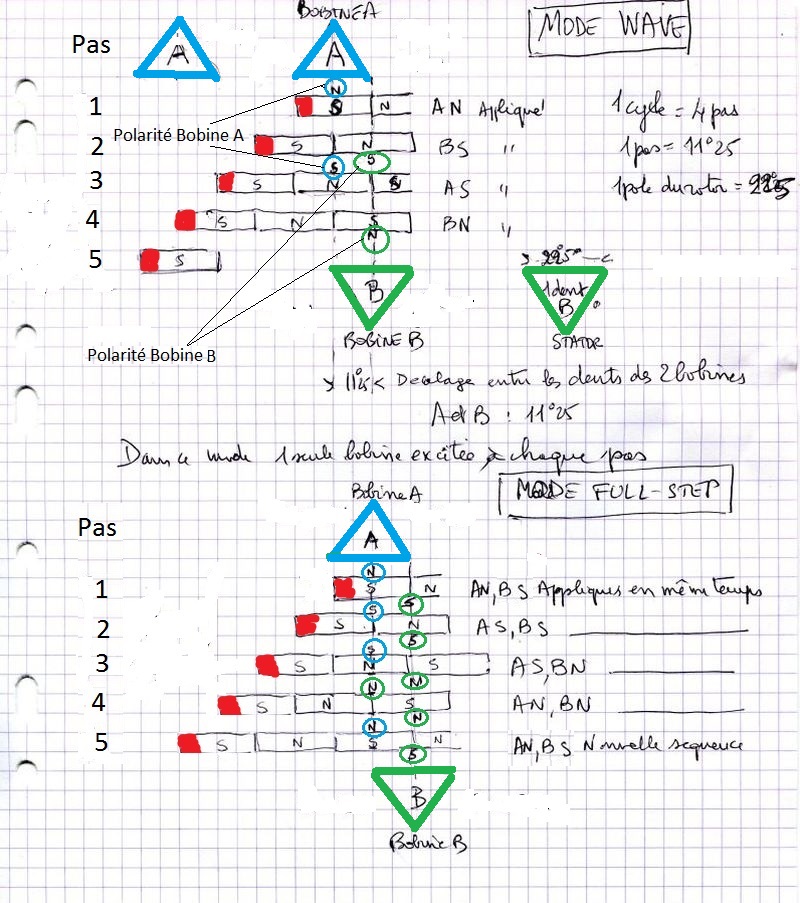 BOBINE A
MODE WAVE
Pas
A
A
N
1
S
N
AN Appliqué
1 cycle = 4 pas
Polarité Bobine A
2
S
N
BS "
1 pas = 11°25
S
S
3
S
N
S
AS "
1 pole du rotor = 22°5
4
S
N
S
BN "
N
5
S
22°5
B
1 dent
B
Polarité Bobine B
BOBINE B
STATOR
11°25 Decalage entre les dents des 2 bobines
A et B : 11°25
Dans ce mode 1 seule bobine excitée à chaque pas
MODE FULL-STEP
Bobine A
Pas
A
N
1
S
N
AN, BS Appliqués en même temps
S
S
2
S
N
AS, BS
S
S
3
S
N
S
AS, BN
N
N
4
S
N
S
AN, BN
N
N
5
S
N
S
N
AN, BS Nouvelle sequence
S
B
Bobine B